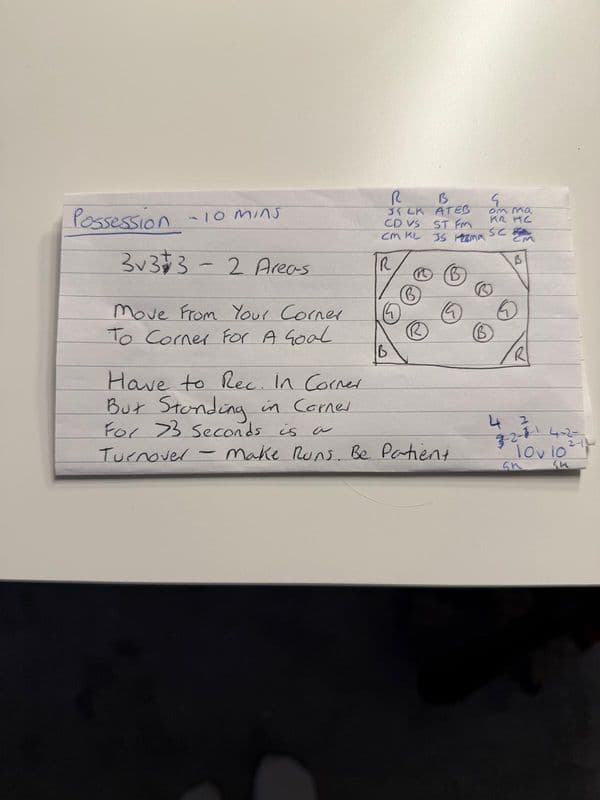 Possession - 10 mins
R B G
JS LK AT EB am ma
CD VS ST Fm KR HC
CM KL JS mm SC Em
3v3+3 - 2 Areas
Move From Your Corner
To Corner For A Goal
Have to Rec. In Corner
But Standing in Corner
For >3 Seconds is a
Turnover - Make Runs. Be Patient
R B
R B
B R
G G G
R B
B R
4 2
2-1 4-2-
2-1
10v10
GK GK